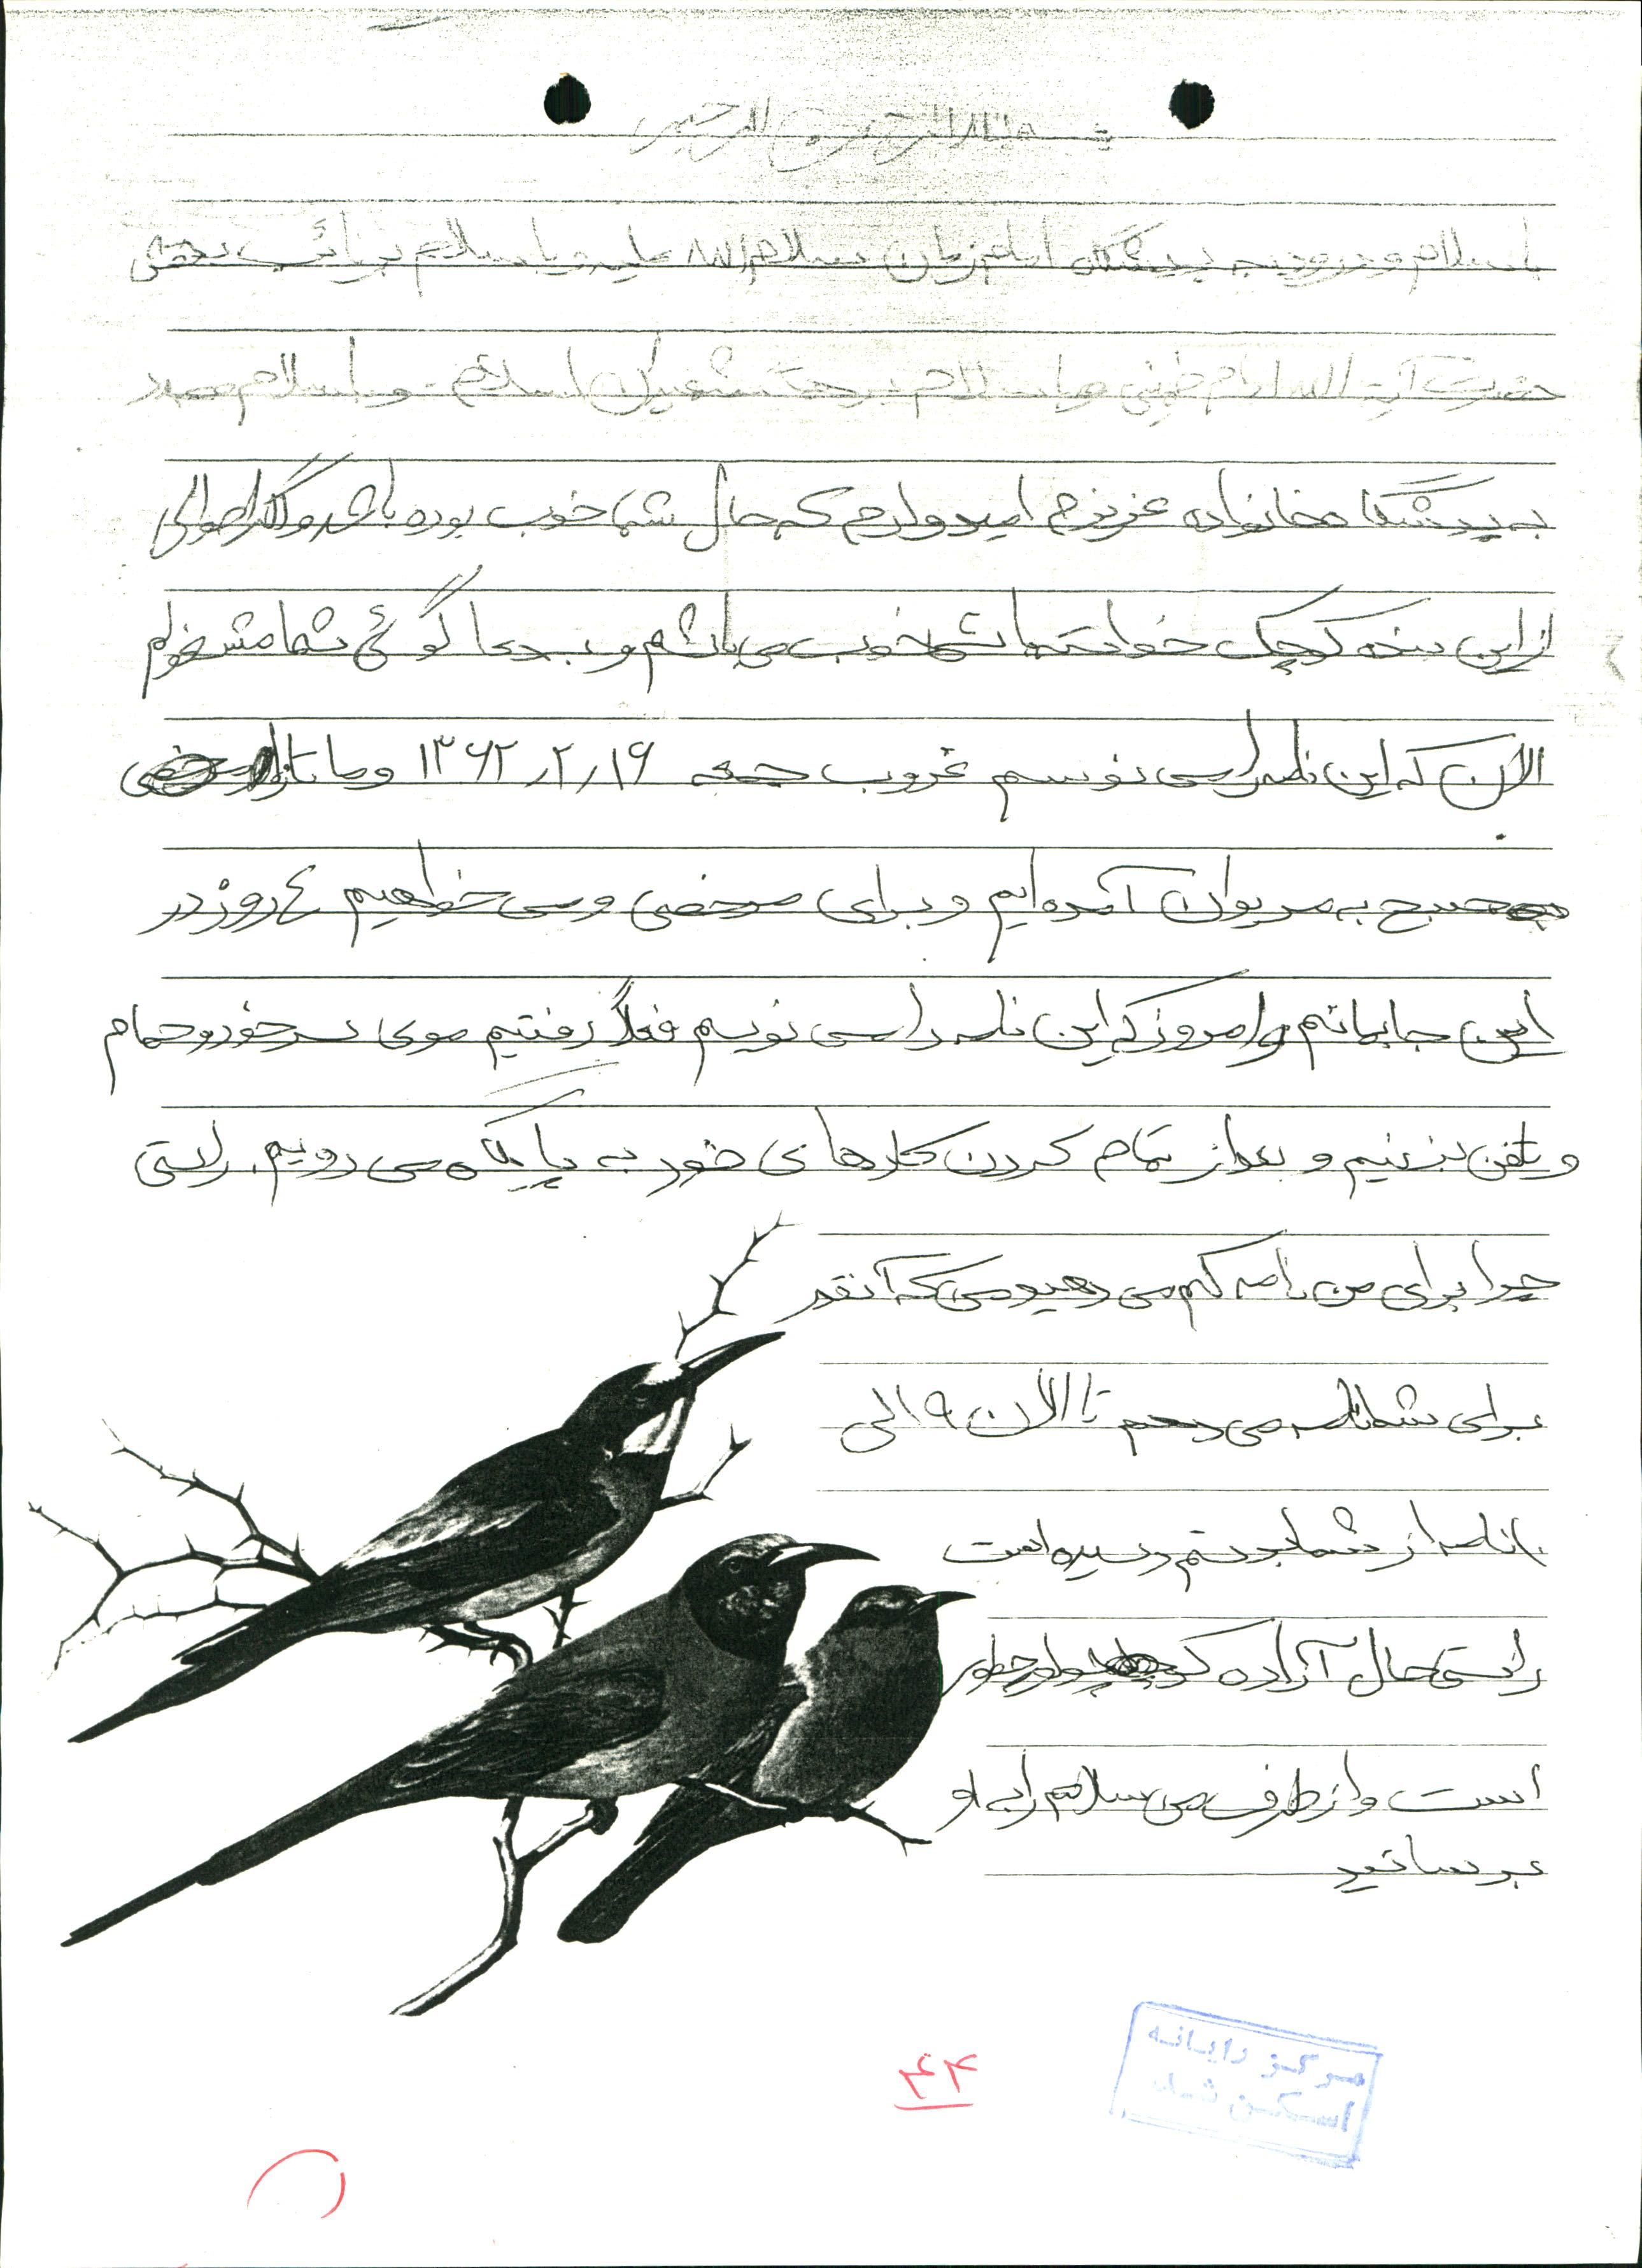 بسم الله الرحمن الرحیم
با سلام و درود به پیشگاه امام زمان سلام الله علیه و با سلام بر نائب بحقش
حضرت آیة الله امام خمینی و با سلام بر همة شهیدان اسلام و با سلام
به پیشگاه خانواده عزیزم امیدوارم که حال شما خوب بوده باشد و اگر احوالی
از این بنده کوچک خواسته باشید خوب می باشم و به دعا گوئی شما مشغولم
الان که این نامه را می نویسم غروب جمعه ۱۳۶۲٫۲٫۱۶ و ما
صبح به مریوان آمده ایم و برای مرخصی و می خواهیم ٤ روز در
این جا بمانیم و امروز که این نامه را می نویسم فعلاً رفتیم موی سر خود و حمام
و تلفن بزنیم و بعد از تمام کردن کارهای خود به پایگاه می رویم. راستی
چرا برای من نامه کم می دهید و من که آنقدر
برای شما نامه می دهم تا الان ۹ الی
۱۰ نامه از شما بدستم رسیده است
راستی حال آزاده کوچولو چطور
است و از طرف من سلام را به او
برسانید
۴۴
مرکز رایانه
اسکن شد